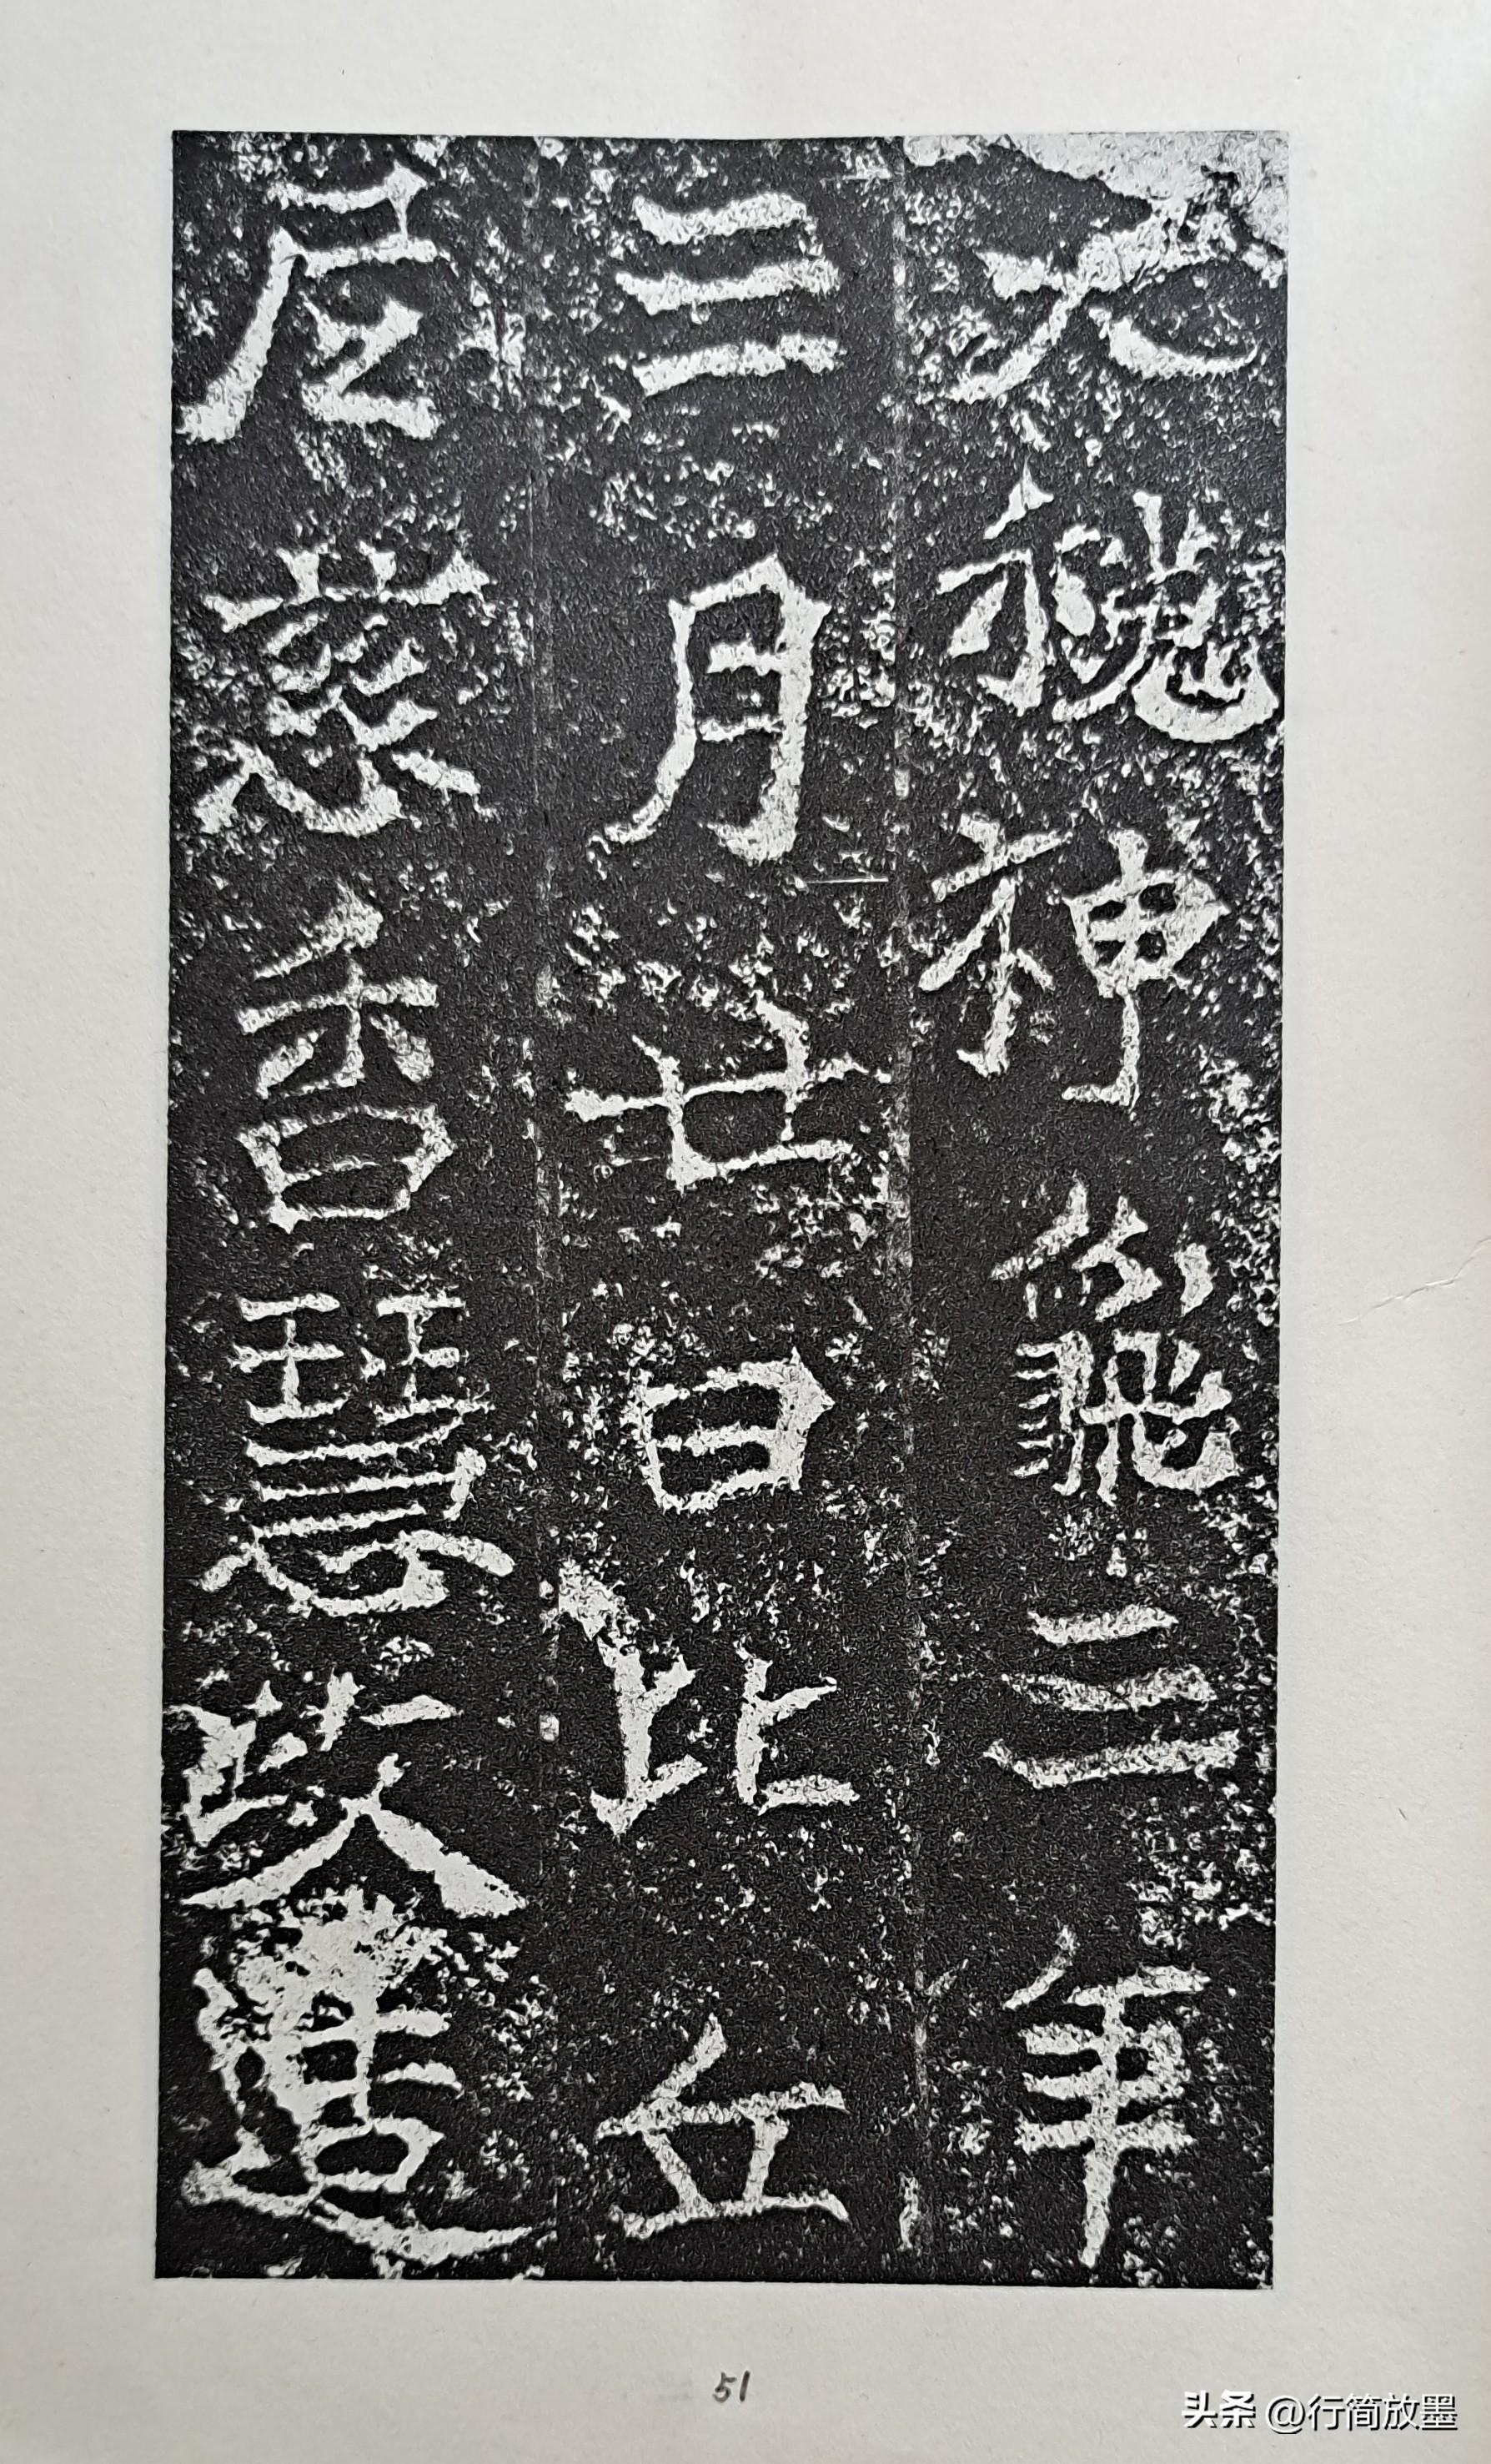 大魏神龜三年
三月廿日比丘
尼慈香慧政造
51
头条 @行简放墨